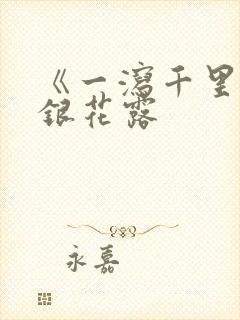 《一瀉千里
銀花露
永嘉